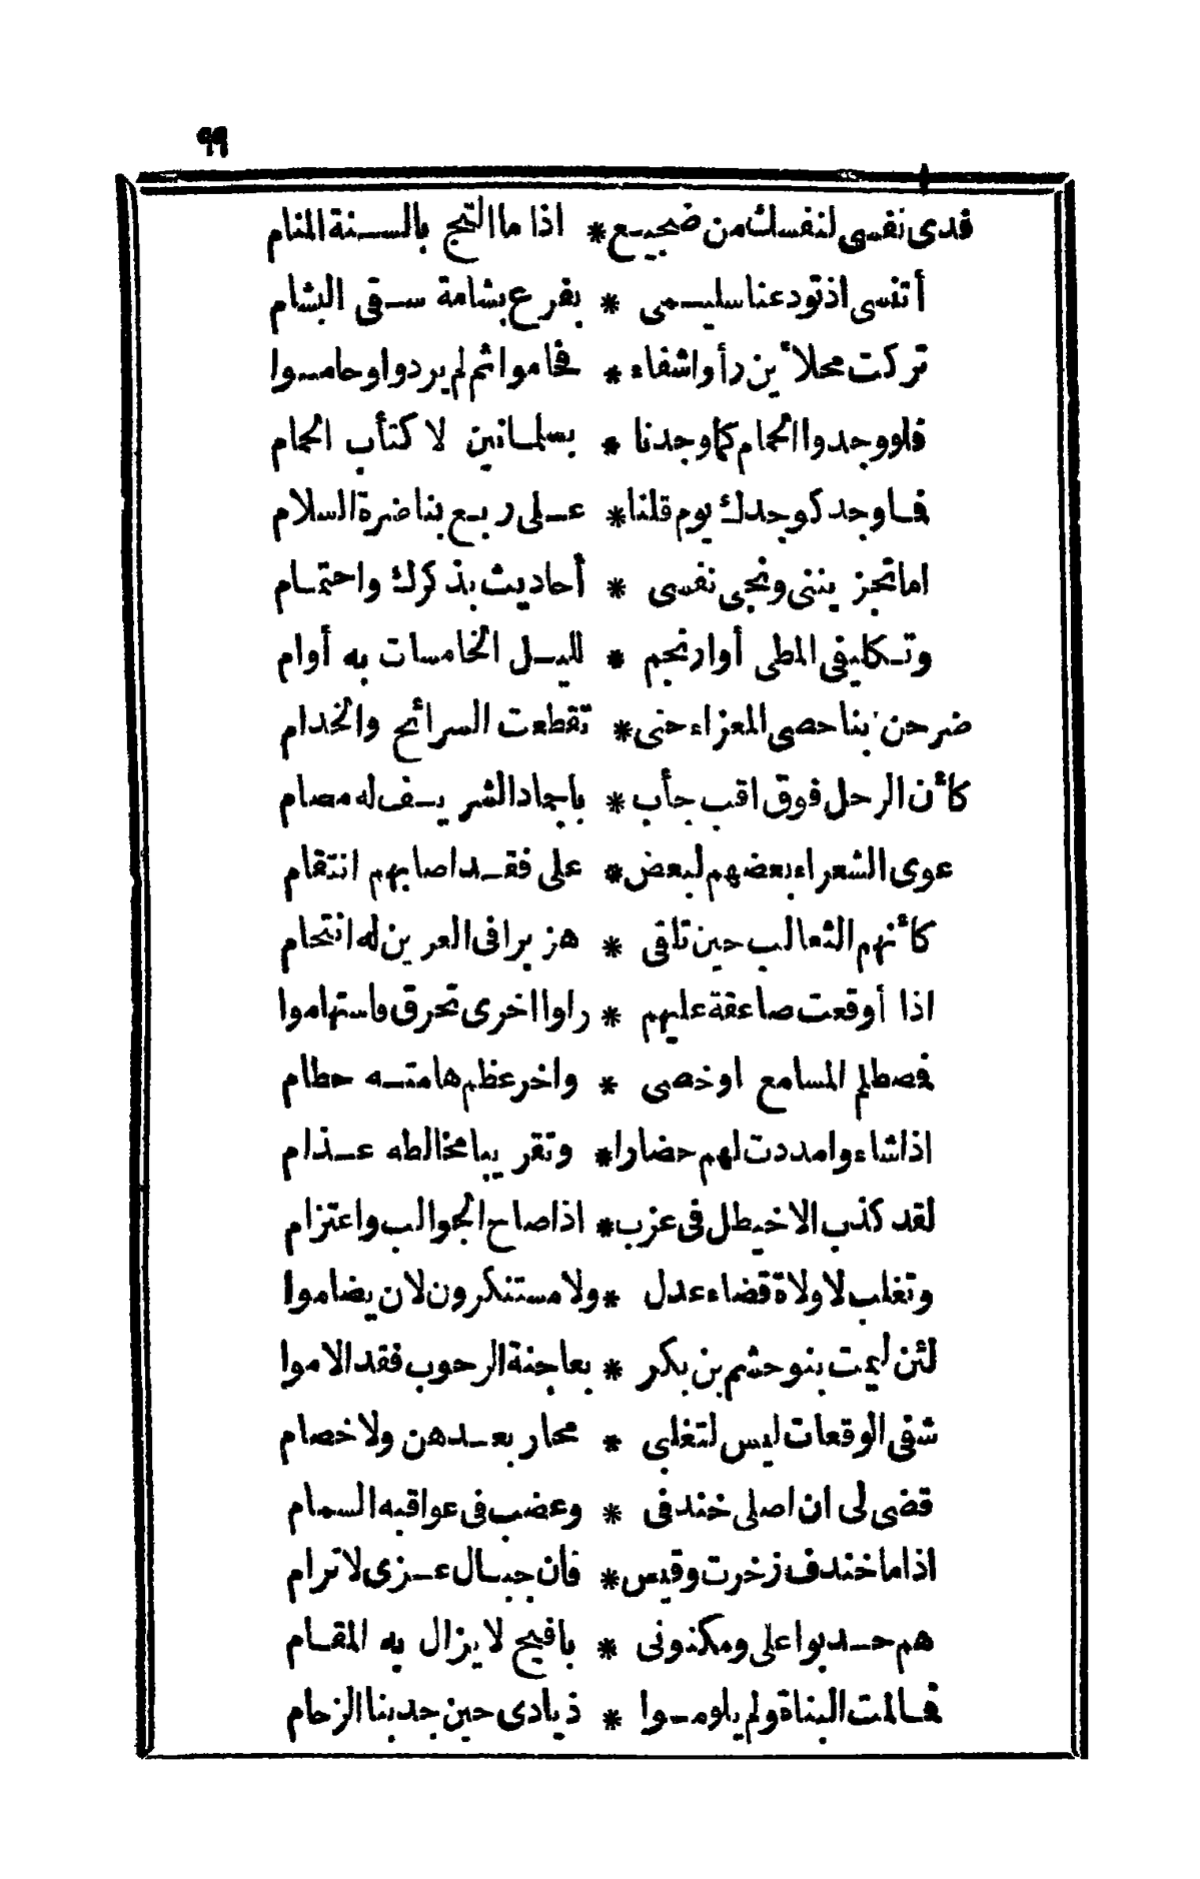 ٩٩
فدى نفسى لنفسك من ضجيع * اذا ما التج بالسنة المنام
أتنسى اذ تودعنا سليمى * بفرع بشامة سقى البشام
تركت محلأين رأوا شفاء * فحاموا ثم لم يردوا وحاموا
فلو وجدوا الحمام كما وجدنا * بسلمانين لا كتأب الحمام
فما وجد كوجدك يوم قلنا * على ربع بناضرة السلام
اما تجزيننى ونجى نفسى * أحاديث بذكرك واحتمام
وتكليفى المطى أوار نجم * لليل الخامسات به أوام
ضرحن بنا حصى المعزاء حتى * تقطعت السرائح والخدام
كأن الرحل فوق اقب جأب * باجماد الشريف له مصام
عوى الشعراء بعضهم لبعض * على فقد اصابهم انتقام
كأنهم الثعالب حين تلقى * هزبرا فى العرين له انتحام
اذا أوقعت صاعقة عليهم * راوا اخرى تحرق فاستهاموا
فمصطلم المسامع او خصى * واخر عظم هامته حطام
اذا شاءوا مددت لهم حضارا * وتقريبا مخالطه عذام
لقد كذب الاخيطل فى عزب * اذا صاح الجوالب واعتزام
وتغلب لا ولاة قضاء عدل * ولا مستنكرون لان يضاموا
لئن ليمت بنو حشم بن بكر * بعاجنة الرحوب فقد الاموا
شفى الوقعات ليس لتغلبى * محار بعدهن ولا خصام
قضى لى ان اصلى خندفى * وعضب فى عواقبه السمام
اذا ما خندف زخرت وقيس * فان جبال عزى لا ترام
هم حدبوا على ومكنونى * بافيح لا يزال به المقام
فما لمت البناة ولم يلوموا * ذيادى حين جد بنا الزحام